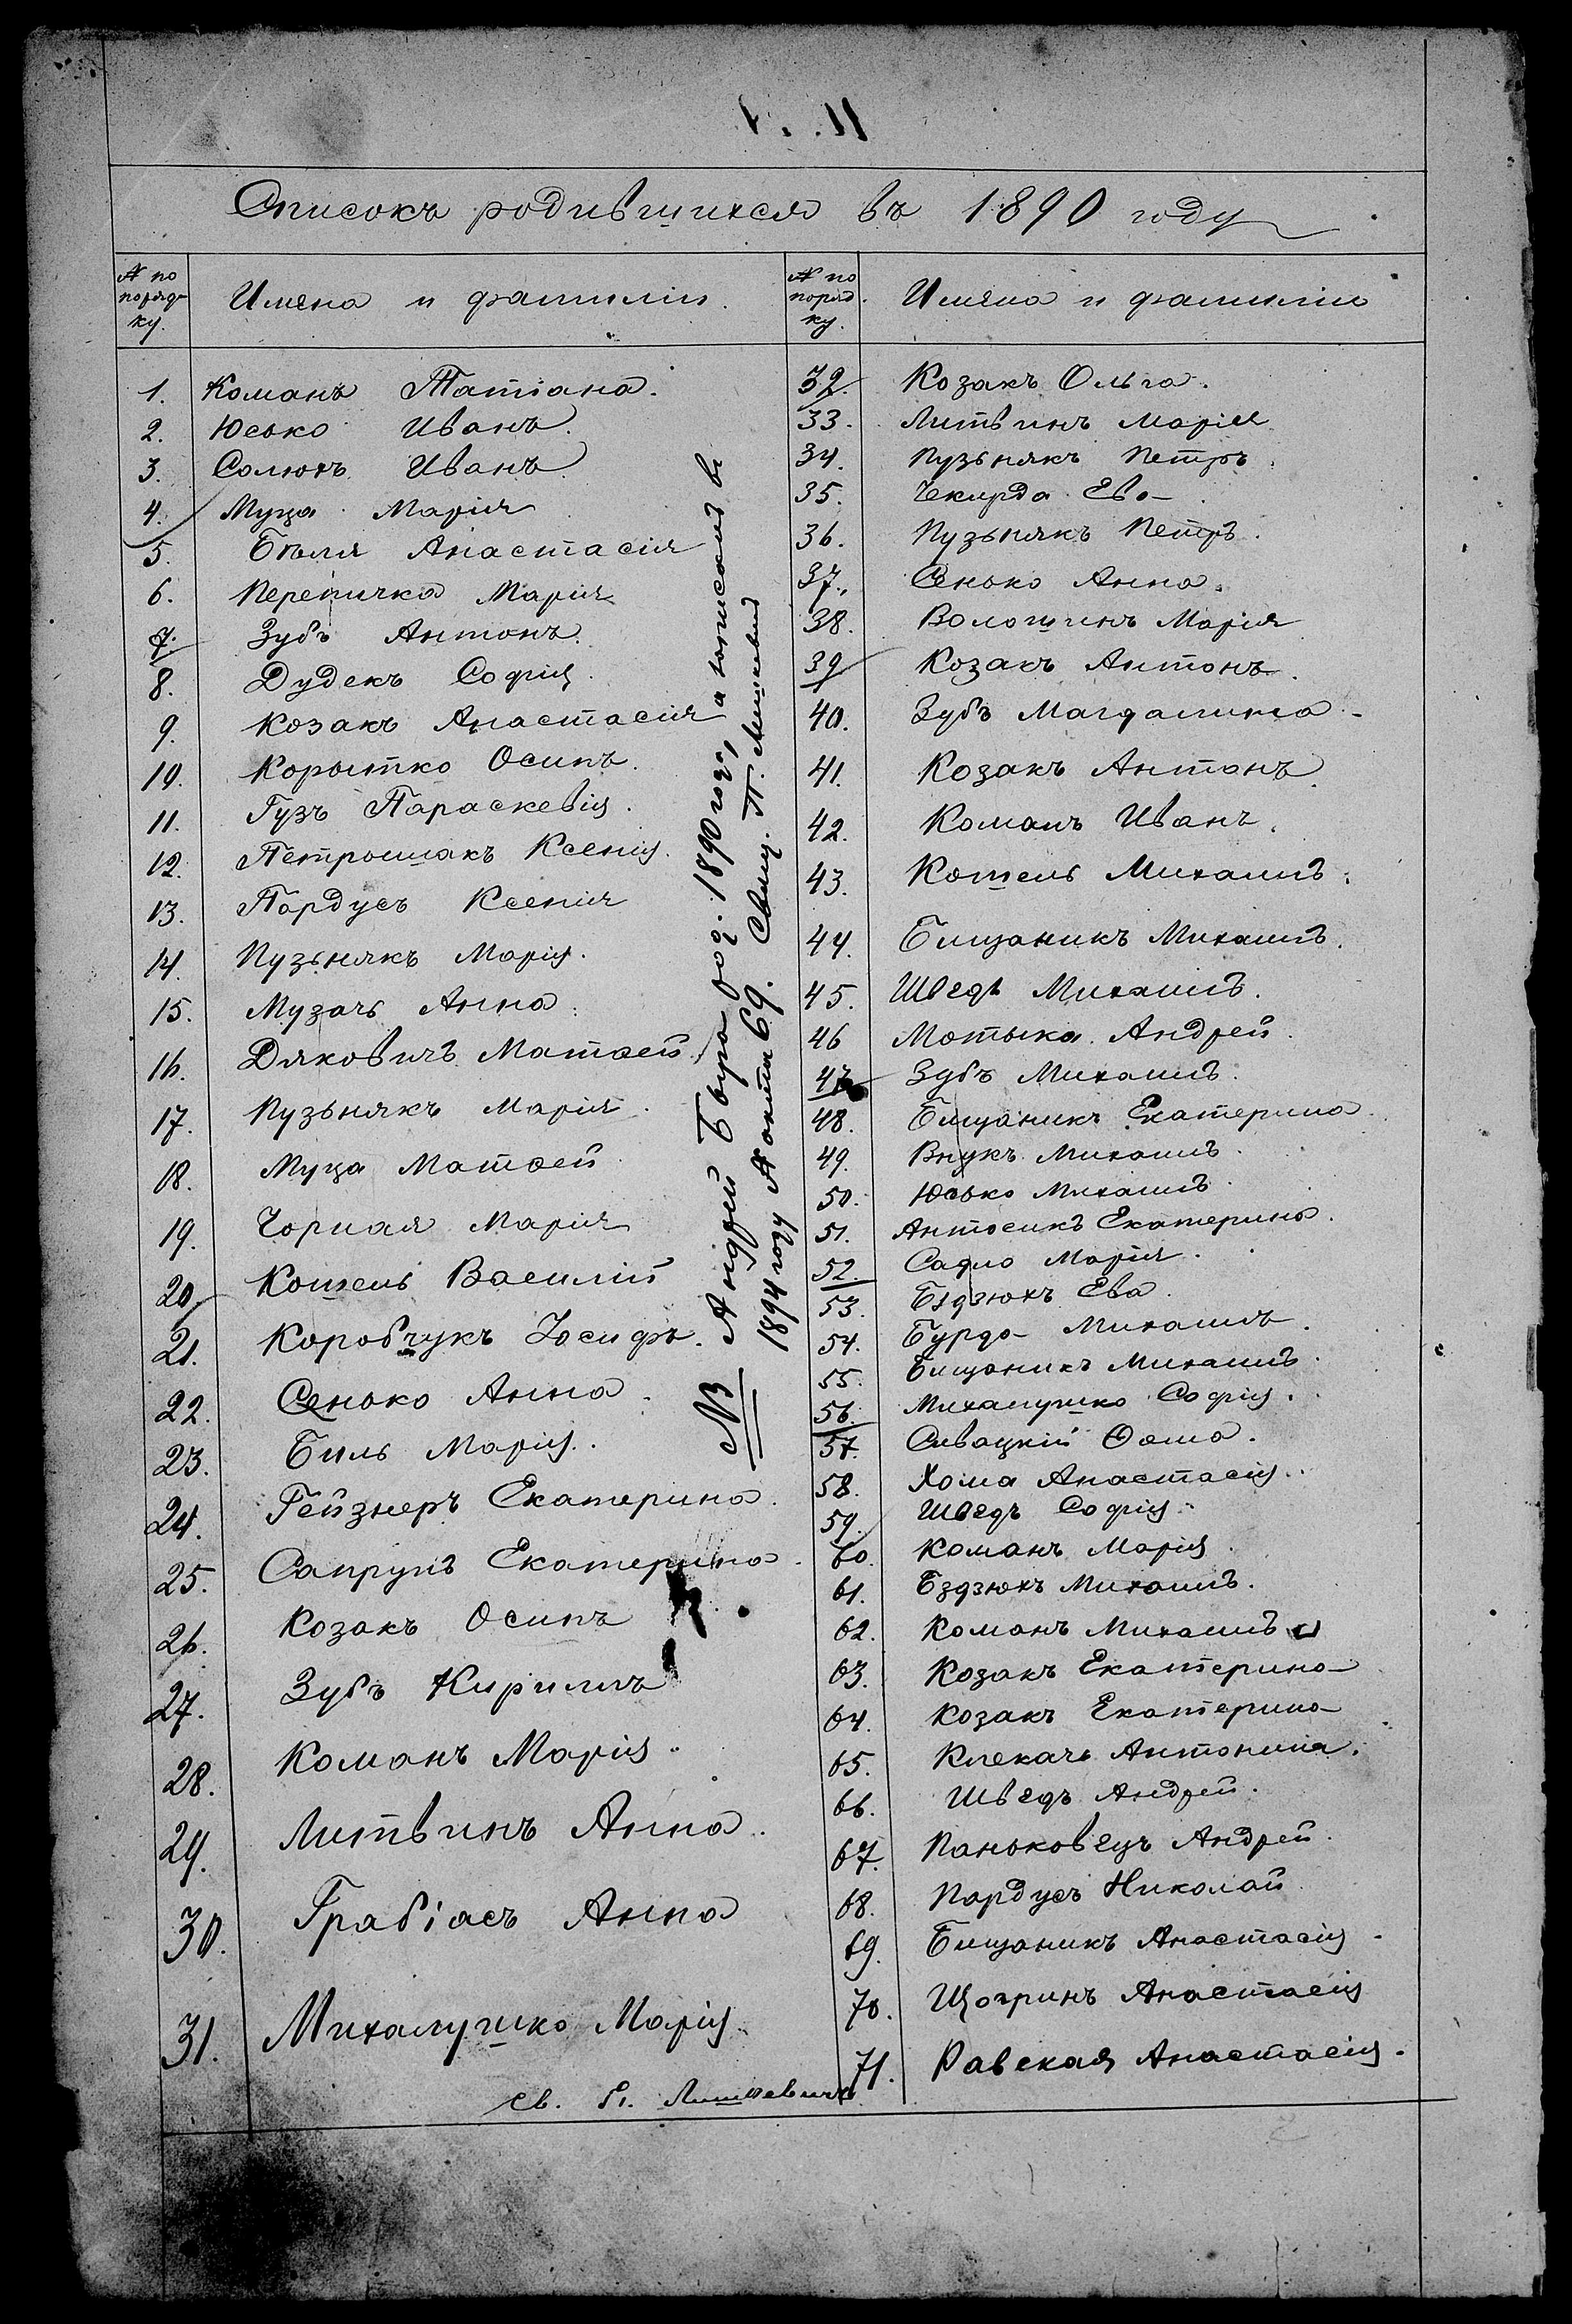 Списокъ родившихся въ 1890 году
№ по порядку. Имена и фамиліи.
1. Команъ Татіана.
2. Юсько Иванъ.
3. Солюхъ Иванъ
4. Муца Марія
5. Бѣля Анастасія
6. Перепичка Марія
7. Зубъ Антонъ.
8. Дудекъ Софія.
9. Козакъ Анастасія
10. Корытко Осипъ.
11. Гузъ Параскевія.
12. Петрошакъ Ксенія.
13. Пардусъ Ксенія
14. Пузьнякъ Марія.
15. Музачъ Анна.
16. Дяковичъ Матѳей.
17. Пузьнякъ Марія.
18. Муца Матѳей
19. Чорная Марія
20. Кошель Василій
21. Коробчукъ Іосифъ.
22. Сенько Анна.
23. Биль Марія.
24. Гейзнеръ Екатерина.
25. Сапрунъ Екатерина.
26. Козакъ Осипъ
27. Зубъ Кириллъ
28. Команъ Марія.
29. Литвинъ Анна.
30. Грабіасъ Анна
31. Михалушко Марія
NB Андрей Бура род. 1890 года, а записанъ въ
1894 году № акта 69. Свящ. П.
№ по поряд. ку. Имяна и фамиліи
32. Козакъ Ольга.
33. Литвинъ Марія
34. Пузьнякъ Петръ.
35. Чекирда Ева
36. Пузьнякъ Петръ.
37. Сенько Анна.
38. Волошинъ Марія
39. Козакъ Антонъ.
40. Зубъ Магдалина
41. Козакъ Антонъ
42. Команъ Иванъ.
43. Котель Михаилъ.
44. Бищаникъ Михаилъ.
45. Шведъ Михаилъ.
46 Мотыка Андрей.
47 Зубъ Михаилъ.
48. Бищаникъ Екатерина.
49. Внукъ Михаилъ.
50. Юсько Михаилъ.
51. Антосикъ Екатерина.
52. Садло Марія.
53. Бздзюхъ Ева.
54. Бурда Михаилъ.
55. Бищаникъ Михаилъ.
56. Михалушко Софія.
57. Сивацкій Ѳома.
58. Хома Анастасія.
59. Шведъ Софія.
60. Команъ Марія.
61. Бздзюхъ Михаилъ.
62. Команъ Михаилъ
63. Козакъ Екатерина
64. Козакъ Екатерина
65. Клекачъ Антонина.
66. Шведъ Андрей.
67. Паньковецъ Андрей.
68. Пардусъ Николай
69. Бищаникъ Анастасія.
70. Щогринъ Анастасія
71. Равская Анастасія.
Св. П.